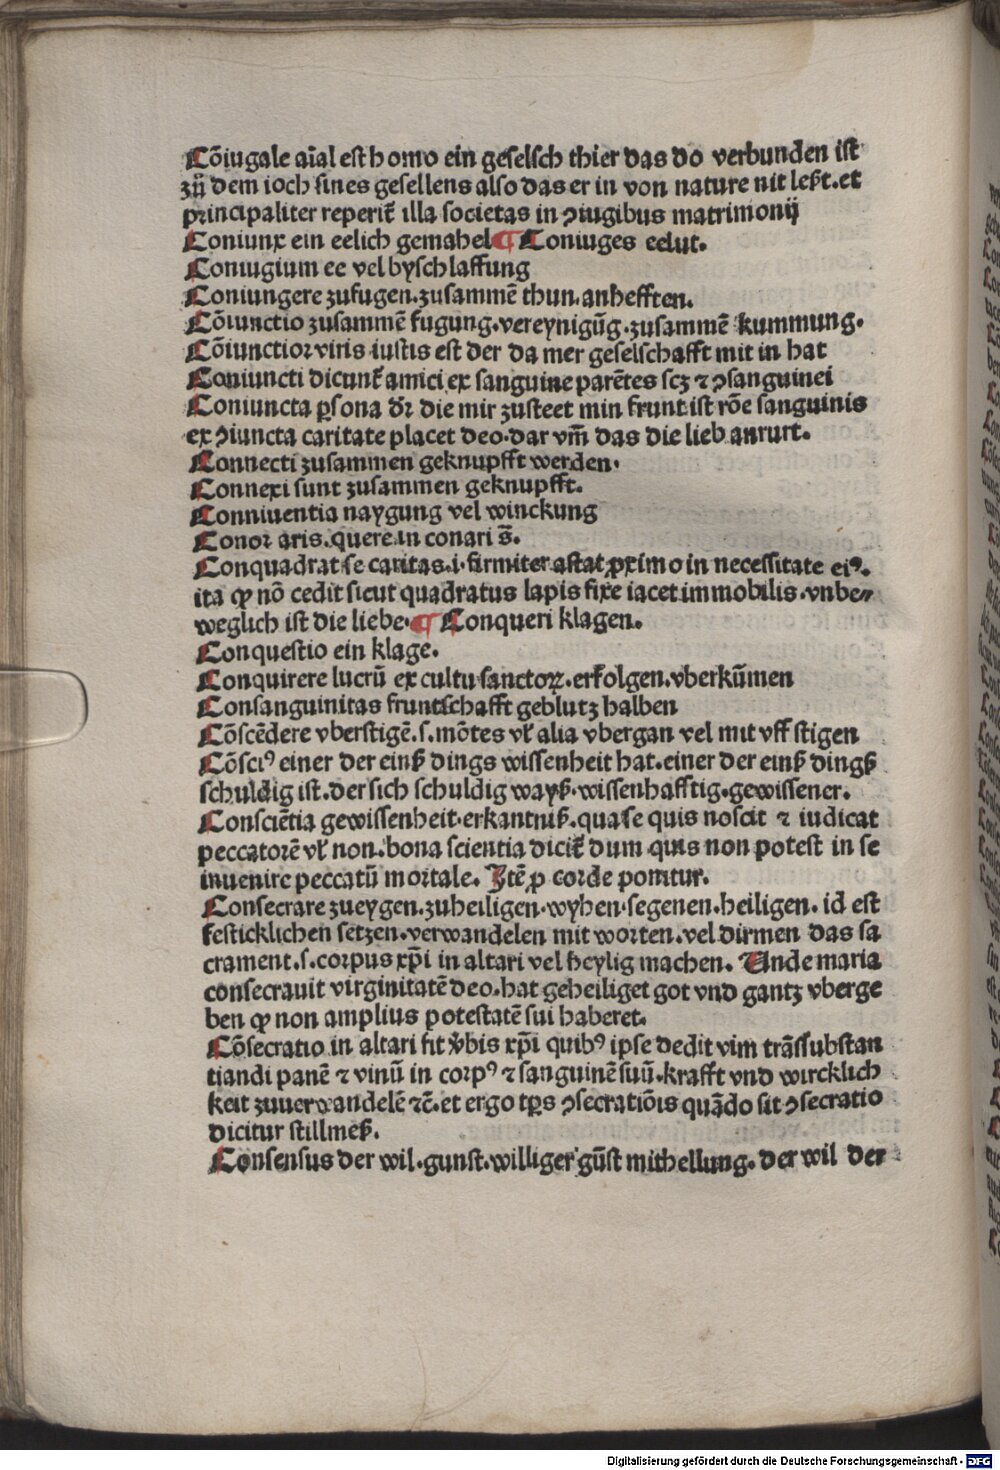 Cōiugale aīal est homo ein geselsch thier das do verbunden ist
zů dem ioch sines gesellens also das er in von nature nit leßt. et
principaliter reperit̄ illa societas in ꝯiugibus matrimonij
Coniunx ein eelich gemahel ¶ Coniuges eelut.
Coniugium ee vel byschlaffung
Coniungere zufugen. zusammē thun. anhefften.
Cōiunctio zusammē fugung. vereynigūg. zusammē kummung.
Cōiunctior viris iustis est der da mer geselschafft mit in hat
Coniuncti dicunt̄ amici ex sanguine parētes scꝫ ⁊ ꝯsanguinei
Coniuncta ꝑsona dr̄ die mir zusteet min frunt ist rōe sanguinis
ex ꝯiuncta caritate placet deo. dar vm̄ das die lieb anrurt.
Connecti zusammen geknupfft werden.
Connexi sunt zusammen geknupfft.
Conniuentia naygung vel winckung
Conor aris. quere in conari s̄.
Conquadrat se caritas. i. firmiter astat ꝓximo in necessitate eiꝰ.
ita ꝙ nō cedit sicut quadratus lapis fixe iacet immobilis. vnbe⸗
weglich ist die liebe. ¶ Conqueri klagen.
Conquestio ein klage.
Conquirere lucrū ex cultu sanctoꝝ. erfolgen. vberkūmen
Consanguinitas fruntschafft geblutz halben
Cōscēdere vberstigē. s. mōtes vl̄ alia vbergan vel mit vff stigen
Cōsciꝰ einer der einß dings wissenheit hat. einer der einß dingß
schuldig ist. der sich schuldig wayß. wissenhafftig. gewissener.
Consciētia gewissenheit. erkantniß. qua se quis noscit ⁊ iudicat
peccatorē vl̄ non. bona scientia dicit̄ dum quis non potest in se
inuenire peccatū mortale. Itē ꝓ corde ponitur.
Consecrare zueygen. zuheiligen. wyhen. segenen. heiligen. id est
festicklichen setzen. verwandelen mit worten. vel dirmen das sa
crament. s. corpus xp̄i in altari vel heylig machen. Unde maria
consecrauit virginitatē deo. hat geheiliget got vnd gantz vberge
ben ꝙ non amplius potestatē sui haberet.
Cōsecratio in altari fit v̄bis xp̄i quibꝰ ipse dedit vim trāssubstan
tiandi panē ⁊ vinū in corpꝰ ⁊ sanguinē suū. krafft vnd wircklich
keit zuuerwandelē ⁊c̄. et ergo tp̄s ꝯsecratiōis quādo sit ꝯsecratio
dicitur stillmeß.
Consensus der wil. gunst. williger gūst mithellung. der wil der
Digitalisierung gefördert durch die Deutsche Forschungsgemeinschaft - DFG